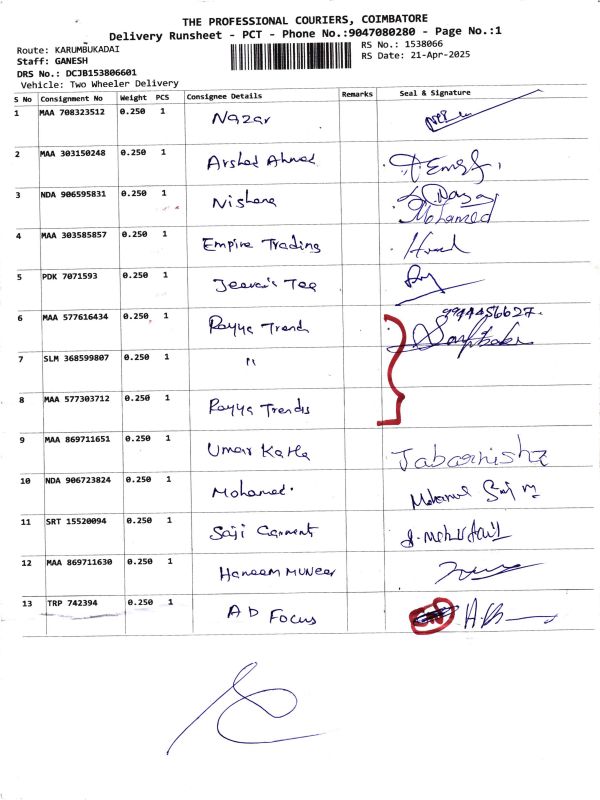 THE PROFESSIONAL COURIERS, COIMBATORE
Delivery Runsheet - PCT - Phone No.:9047080280 - Page No.:1
Route: KARUMBUKADAI
RS No.: 1538066
Staff: GANESH
RS Date: 21-Apr-2025
DRS No.: DCJB153806601
Vehicle: Two Wheeler Delivery
S No Consignment No Weight PCS Consignee Details Remarks Seal & Signature
1 MAA 708323512 0.250 1 Nazar
2 MAA 303150248 0.250 1 Arshad Ahmed
3 NDA 906595831 0.250 1 Nishana
Mohamed
4 MAA 303585857 0.250 1 Empire Trading
5 PDK 7071593 0.250 1 Jeeva's Tea
9944456627.
6 MAA 577616434 0.250 1 Rayya Trend
7 SLM 368599807 0.250 1 "
8 MAA 577303712 0.250 1 Rayya Trends
9 MAA 869711651 0.250 1 Umar Jabarnisha
10 NDA 906723824 0.250 1 Mohamed.
11 SRT 15520094 0.250 1 Saji Garment
12 MAA 869711630 0.250 1 Haneem Muneer
13 TRP 742394 0.250 1 AD Focus